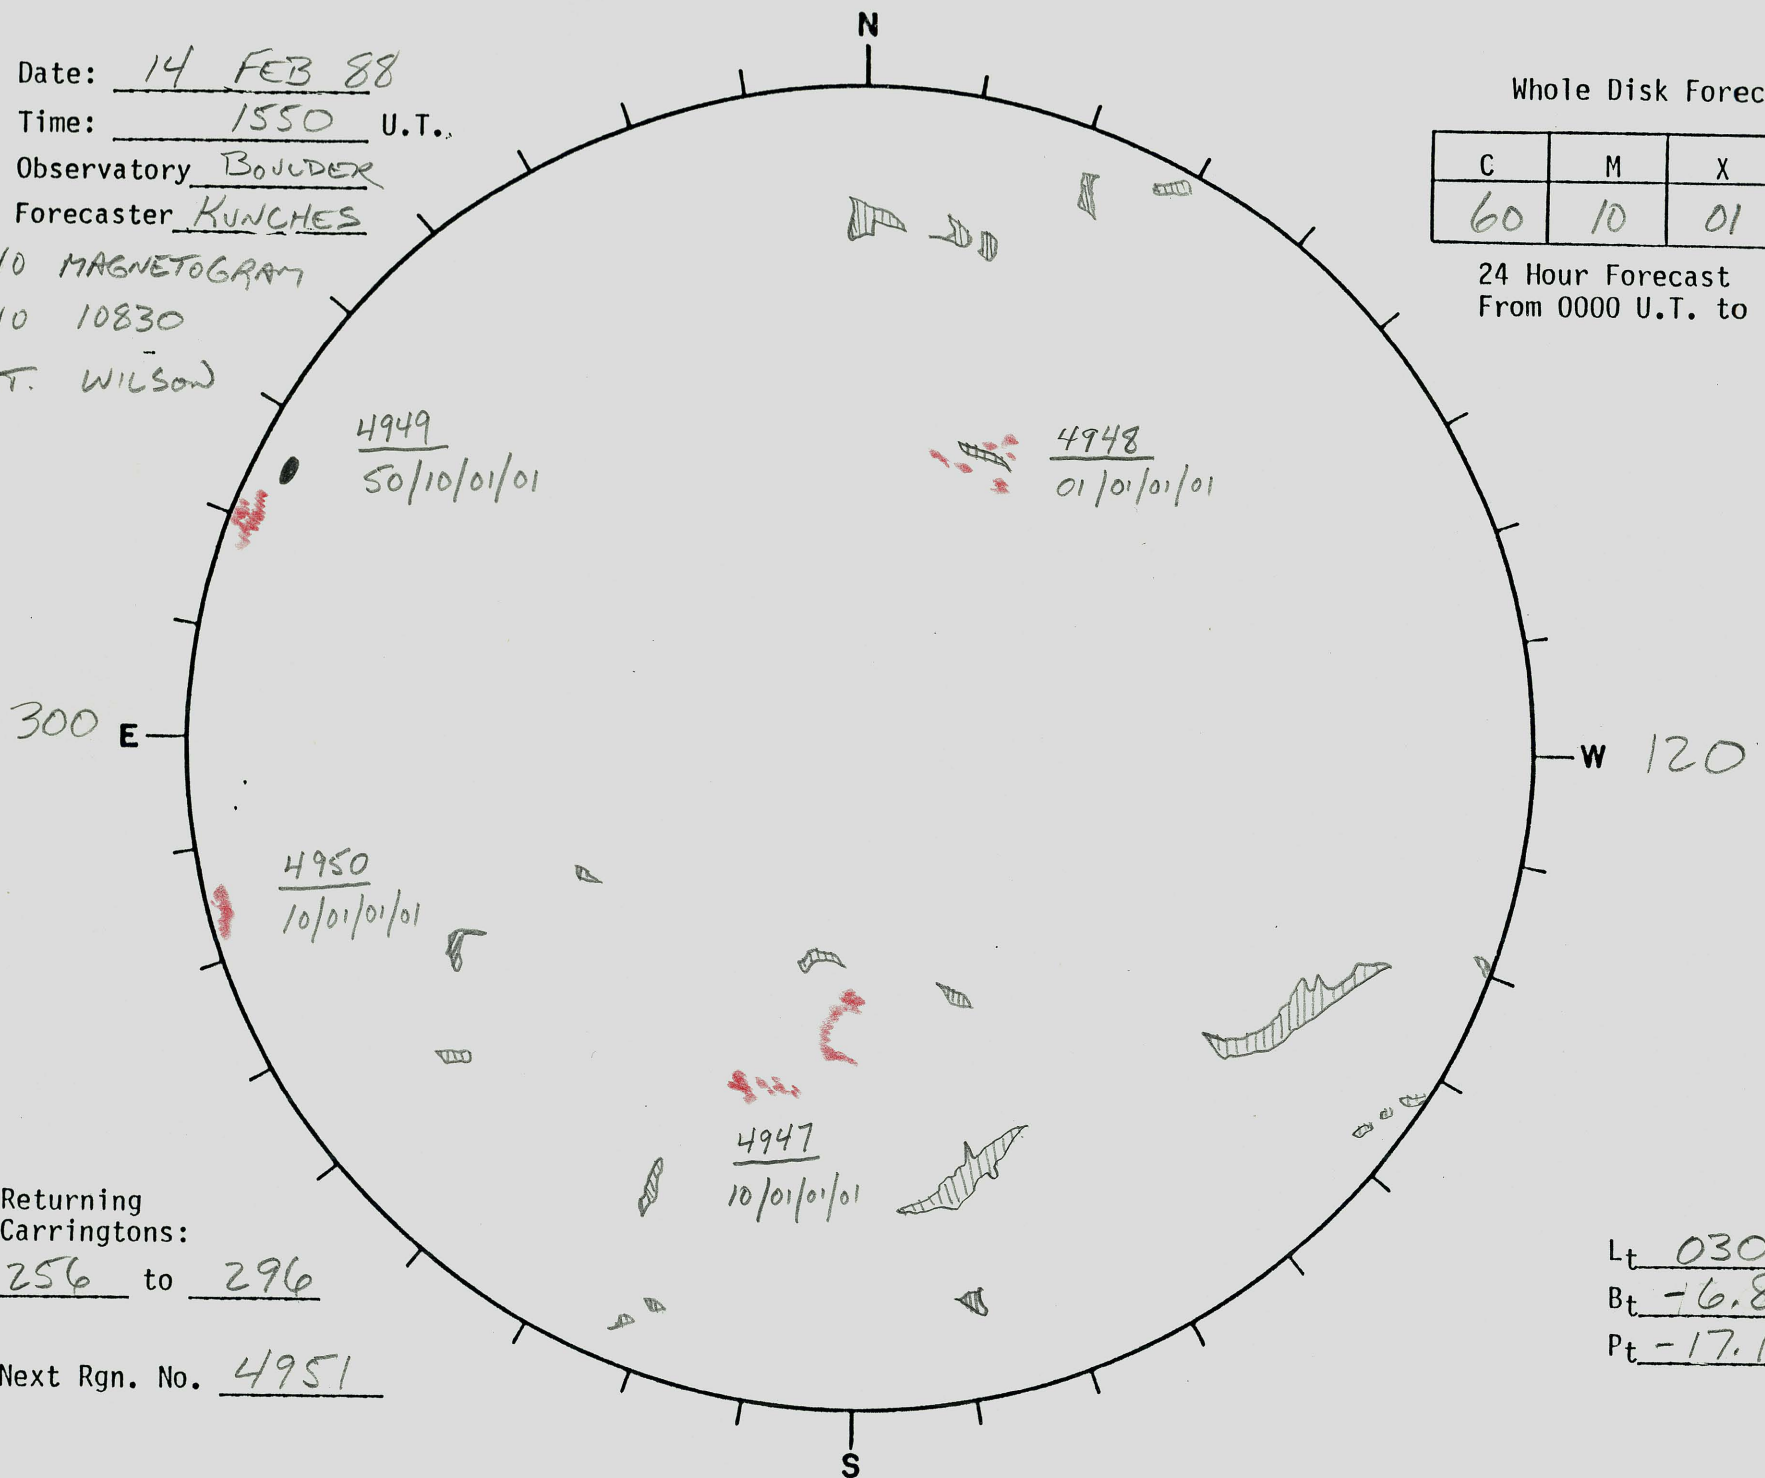 N
Date: 14 FEB 88
Time: 1550 U.T.
Observatory BOULDER
Forecaster KUNCHES
/0 MAGNETOGRAM
/0 10830
T. WILSON
Whole Disk Forec
C M X
60 10 01
24 Hour Forecast
From 0000 U.T. to
4949
50/10/01/01
4948
01/01/01/01
300 E
W 120
4950
10/01/01/01
4947
10/01/01/01
Returning
Carringtons:
256 to 296
Next Rgn. No. 4951
Lt 030
Bt -6.8
Pt -17.1
S